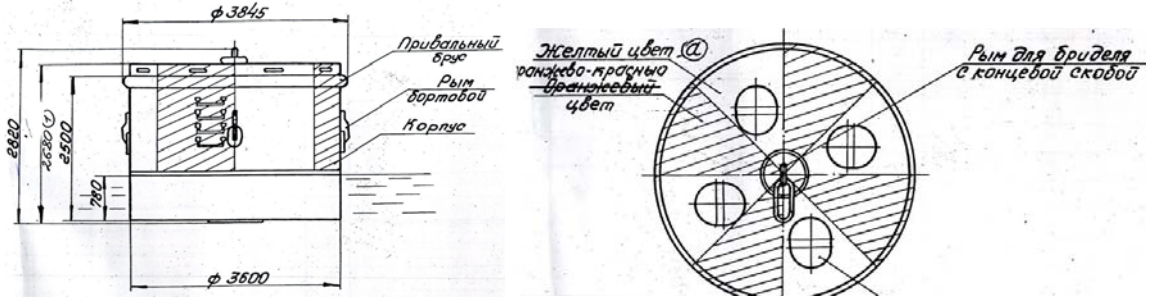 ф 3845
Привальный
брус
Рым
бортовой
Корпус
2820
2680(+)
2500
780
ф 3600
Желтый цвет а
ранжево-красный
Оранжевый
цвет
Рым для бриделя
с концевой скобой